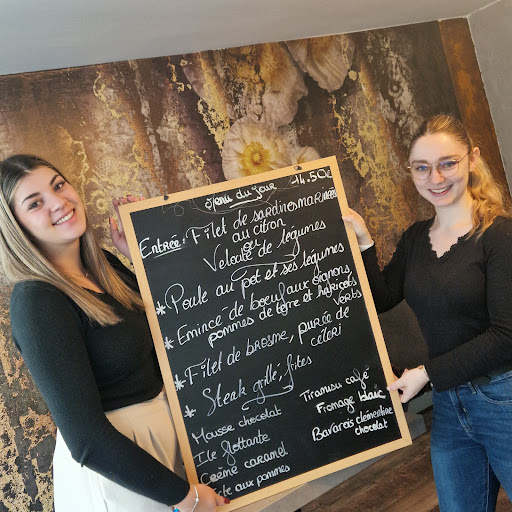 Menu du Jour 14.50€
Entrée: Filet de sardines mariné
au citron
ou
Velouté de légumes
* Poule au pot et ses légumes
* Emincé de boeuf aux oignons
pommes de terre et haricots
verts
* Filet de brosme, purée de
céleri
* Steak grillé, frites
Mousse chocolat
Ile flottante
Crème caramel
aux pommes
Tiramisu café
Fromage blanc
Bavarois clémentine
chocolat